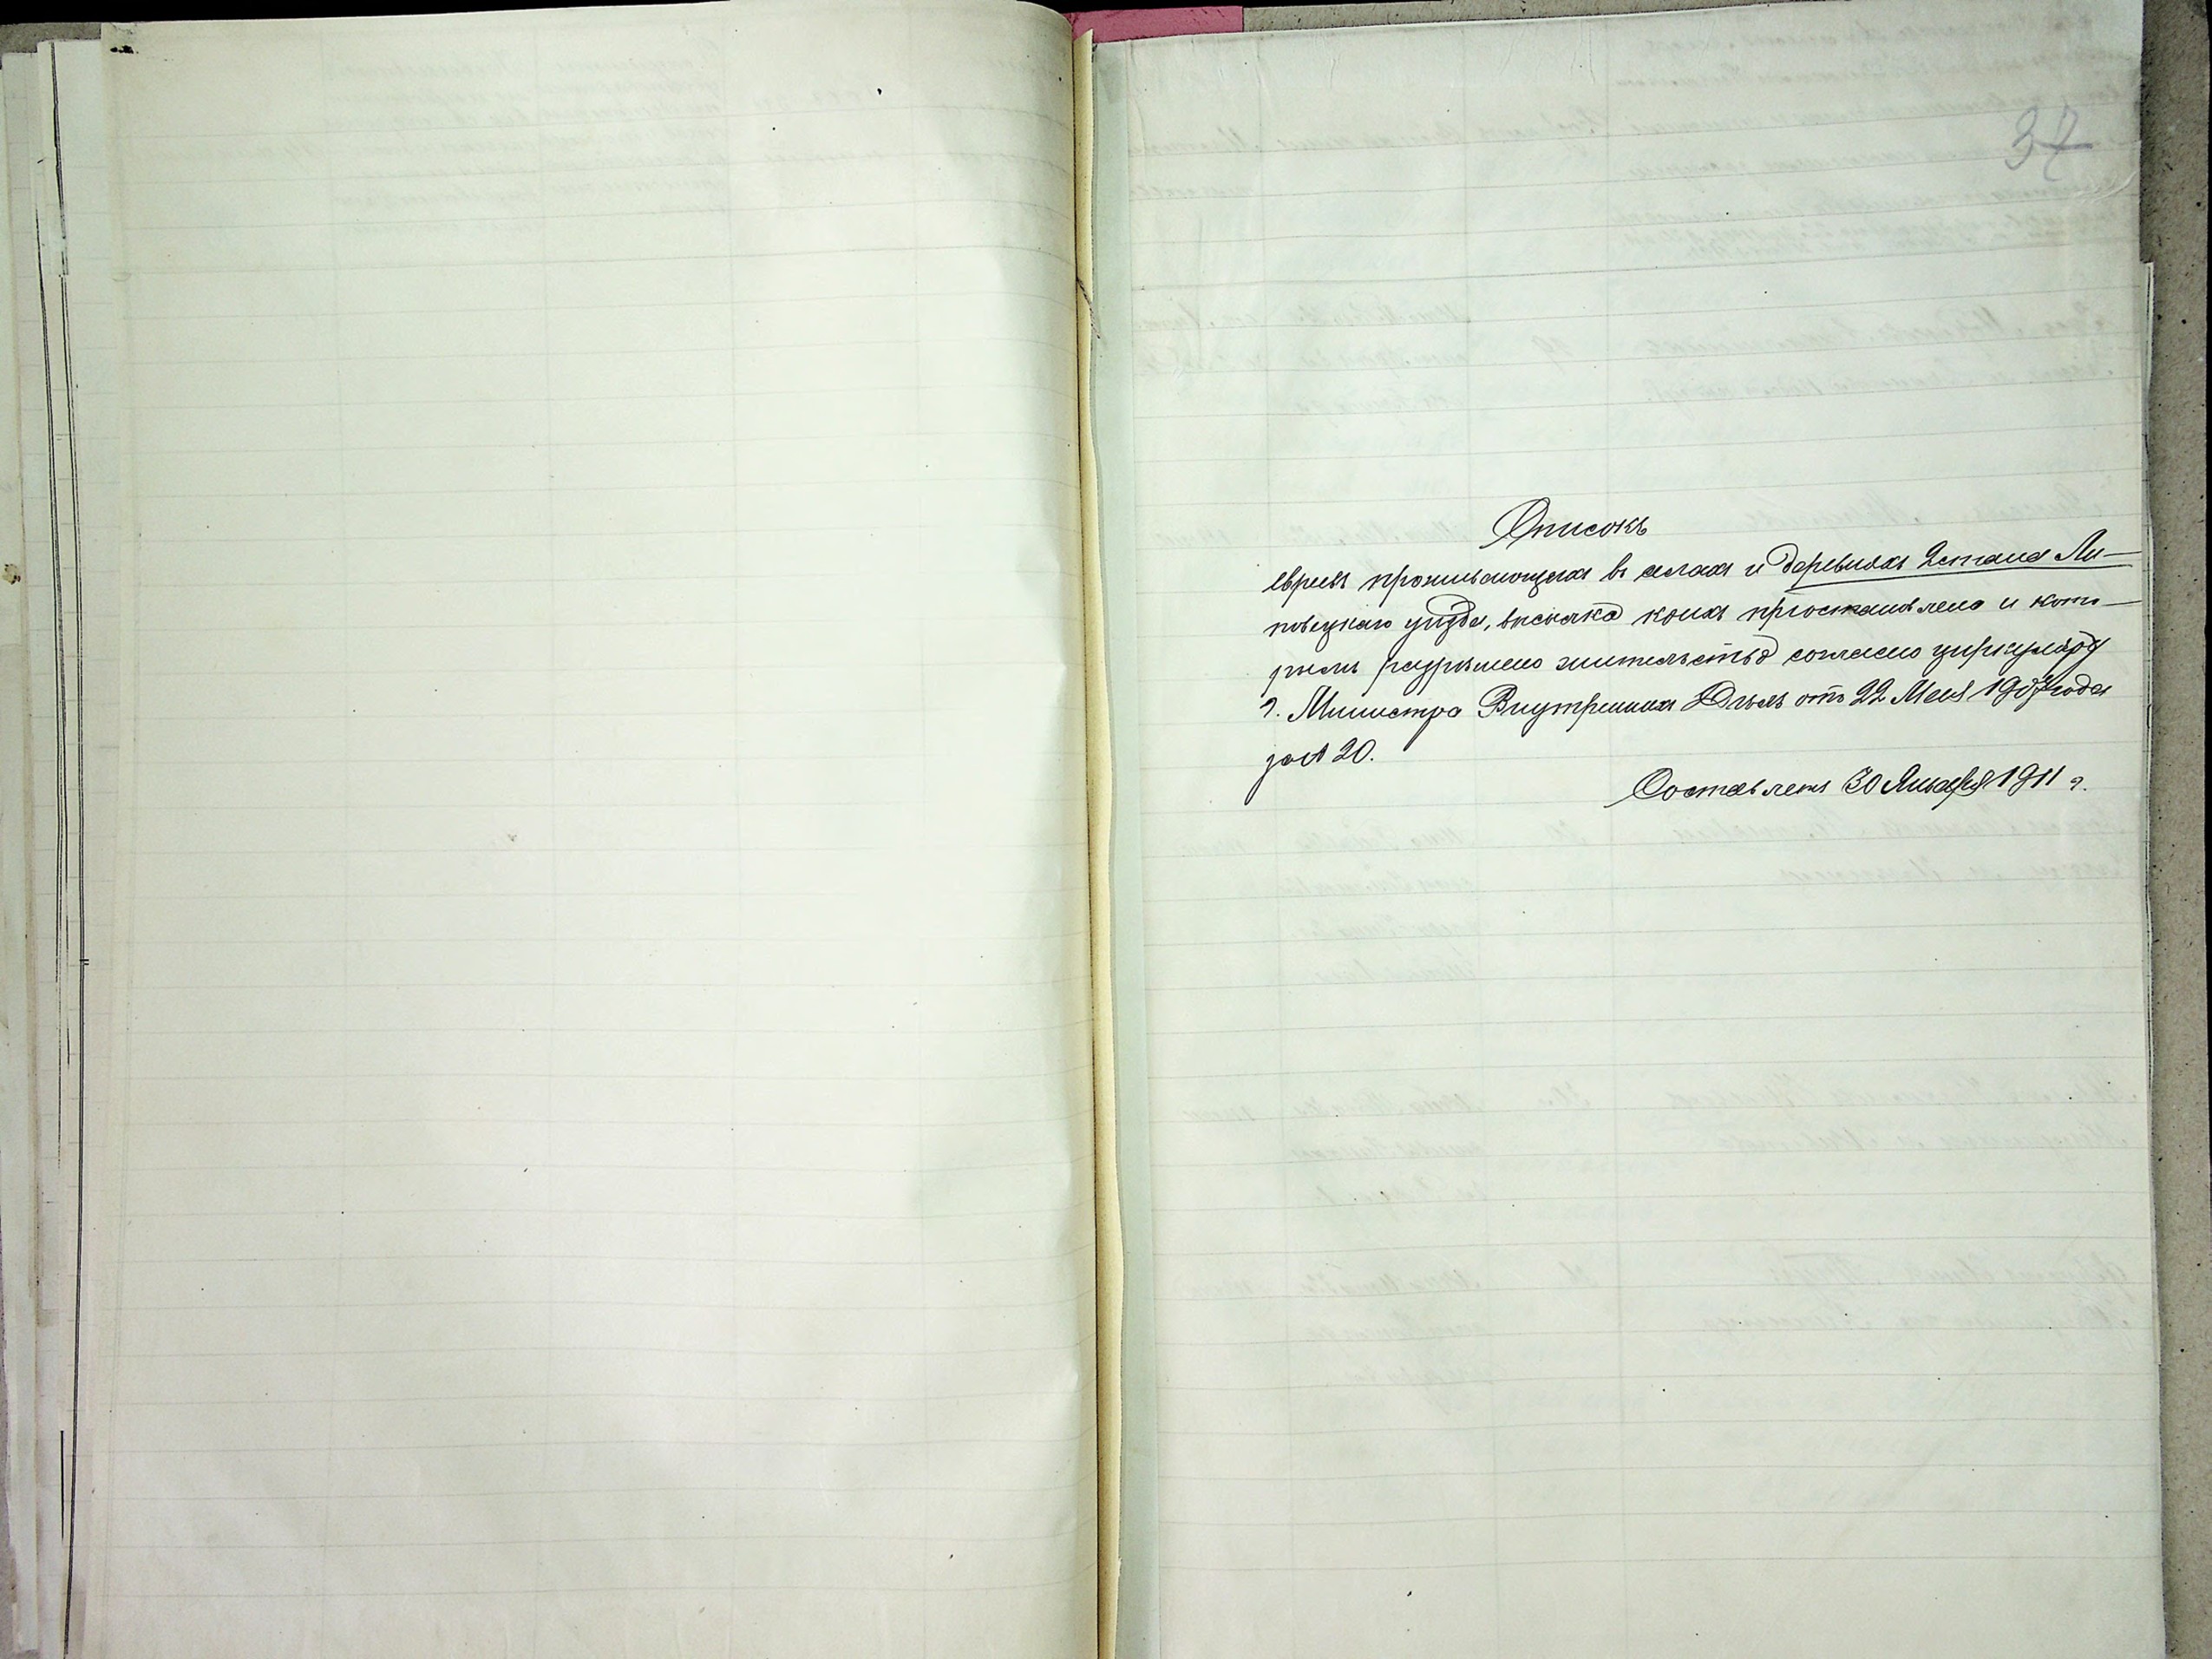 37
Списокъ
евреевъ проживающихъ въ селахъ и деревняхъ 2 стана Ли-
повецкаго уѣзда, высылка коихъ простановлена и кото-
рымъ разрѣшено жительство согласно циркуляру
г. Министра Внутреннихъ Дѣлъ отъ 22 Мая 1907 года
за № 20.
Составленъ 30 Января 1911 г.